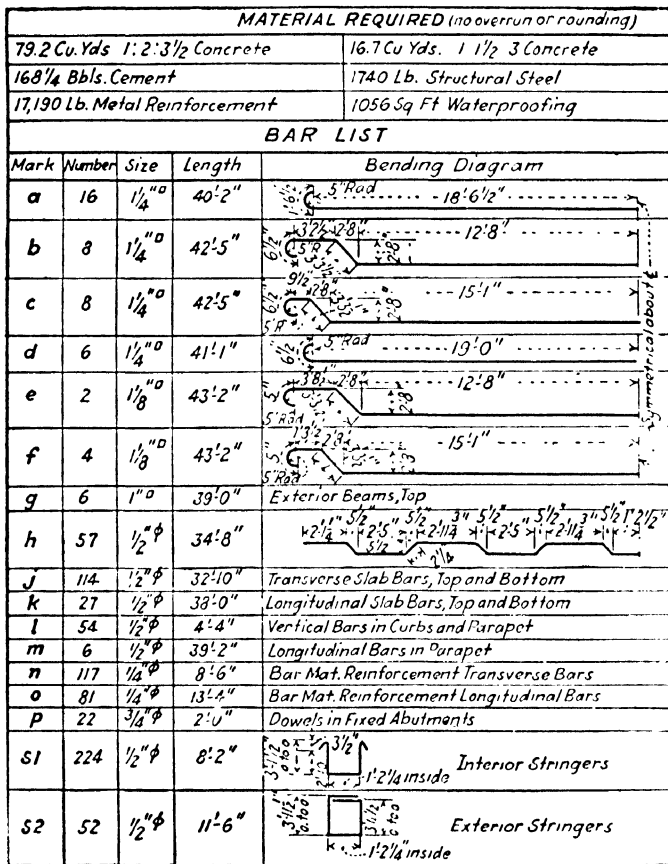 MATERIAL REQUIRED (no overrun or rounding)
79.2 Cu. Yds 1:2:3½ Concrete 16.7 Cu Yds. 1 1½ 3 Concrete
168¼ Bbls. Cement 1740 Lb. Structural Steel
17,190 Lb. Metal Reinforcement 1056 Sq Ft Waterproofing
BAR LIST
Mark Number Size Length Bending Diagram
a 16 1¼"□ 40'-2" 1'-6½" 5"Rad 18'-6½"
b 8 1¼"□ 42'-5" 6½" 3'2½" 2'-8" 5"R 3'3½" 2'-8" 12'-8"
c 8 1¼"□ 42'-5" 6½" 9½" 2'-8" 5"R 2'-8" 15'-1"
d 6 1¼"□ 41'-1" 6½" 5"Rad 19'-0"
e 2 1⅛"□ 43'-2" 5" 3'8½" 2'-8" 5"Rad 2'-8" 12'-8"
f 4 1⅛"□ 43'-2" 5" 1'3½" 2'8" 5"Rad 15'-1"
Symmetrical about ℄
g 6 1"□ 39'-0" Exterior Beams, Top
h 57 ½"ϕ 34'-8" 2'-1¼" 5½" 2'-5" 5½" 2'-11¾" 5½" 2'-5" 5½" 2'-11¾" 5½" 1'2½" 5½ 2¼
j 114 ½"ϕ 32'-10" Transverse Slab Bars, Top and Bottom
k 27 ½"ϕ 38'-0" Longitudinal Slab Bars, Top and Bottom
l 54 ½"ϕ 4'-4" Vertical Bars in Curbs and Parapet
m 6 ½"ϕ 39'-2" Longitudinal Bars in Parapet
n 117 ¼"ϕ 8'-6" Bar Mat. Reinforcement Transverse Bars
o 81 ¼"ϕ 13'-4" Bar Mat. Reinforcement Longitudinal Bars
p 22 ¾"ϕ 2'-0" Dowels in Fixed Abutments
S1 224 ½"ϕ 8'-2" 3'-1½" o.to o. 3½" 1'-2¼ inside Interior Stringers
S2 52 ½"ϕ 11'-6" 3'-1½" o.to o. 3'-1½ o.to o. 1'-2¼" inside Exterior Stringers